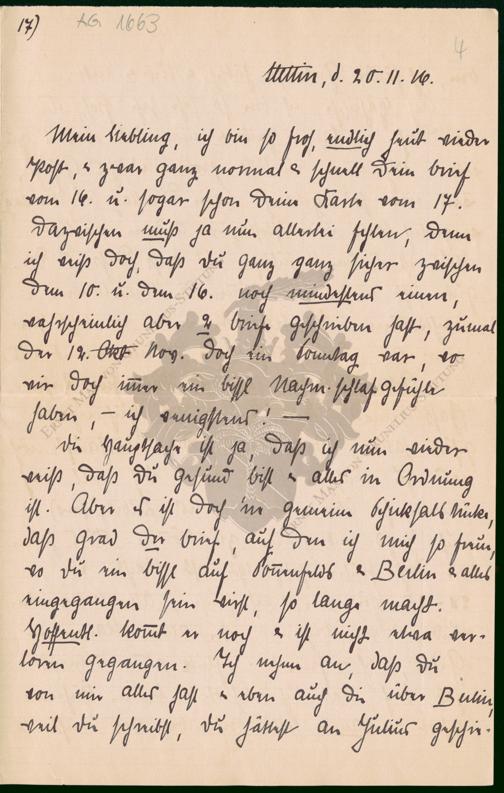 17) AG 1663
4
Stettin, d. 20.11.16.
Mein Liebling, ich bin so froh, endlich heut wieder
Post, & zwar ganz normal & schnell Dein Brief
vom 16. u. sogar schon Deine Karte vom 17.
Dazwischen muß ja nun allerlei fehlen, denn
ich weiß doch, daß Du ganz ganz sicher zwischen
dem 10. u. dem 16. noch mindestens einen,
wahrscheinlich aber 2 Briefe geschrieben hast, zumal
der 12. Okt Nov. doch ein Sonntag war, wo
wir doch immer ein bissl Nachm.schlafgefühle
haben, – ich wenigstens! –
Die Hauptsache ist ja, daß ich nun wieder
weiß, daß Du gesund bist & alles in Ordnung
ist. Aber es ist doch ne gemeine Schicksalstücke,
daß grad der Brief, auf den ich mich so freue,
wo Du ein bissl auf Sonnenfelds & Berlin & alles
eingegangen sein wirst, so lange macht.
Hoffentl. kommt er noch & ist nicht etwa ver-
loren gegangen. Ich nehme an, daß Du
von mir alles hast & eben auch die über Berlin,
weil Du schreibst, Du hättest an Julius geschrie-